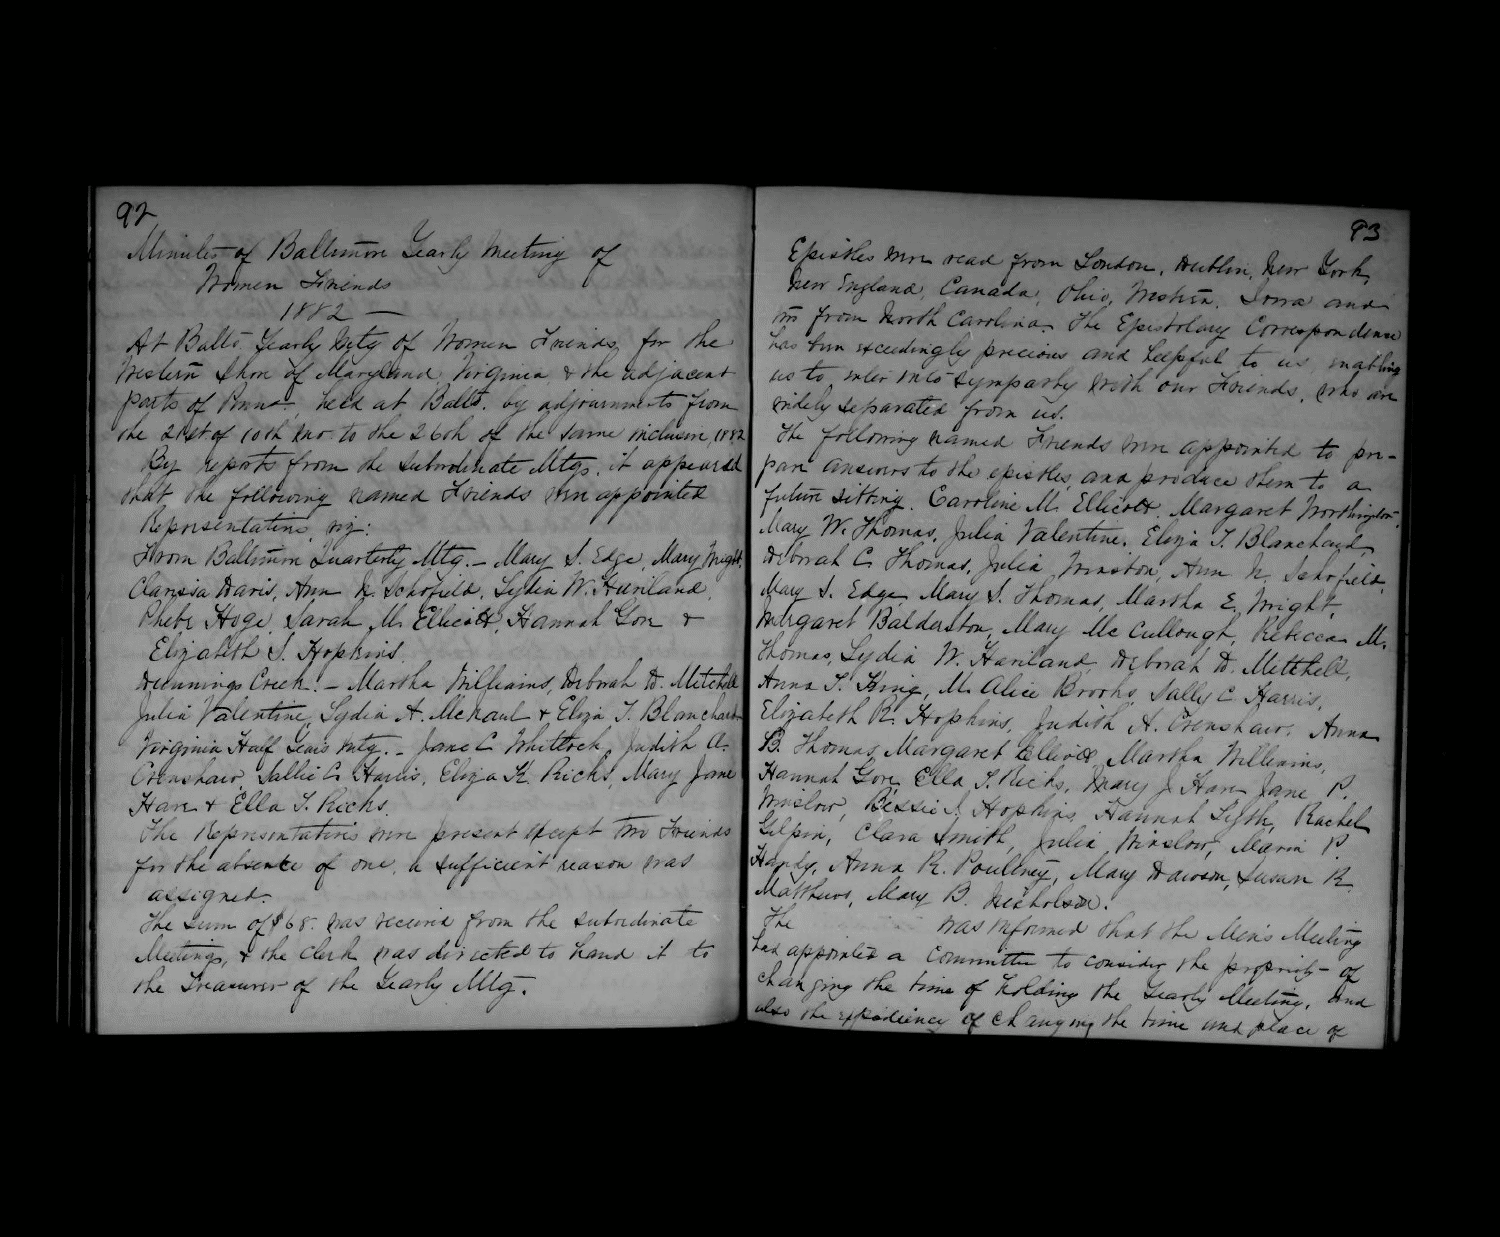 92
Minutes of Baltimore Yearly Meeting of
Women Friends
1882 —
At Balto. Yearly Mtg of Women Friends for the
Western Shore of Maryland, Virginia & the adjacent
parts of Penna., held at Balto. by adjournments from
the 21st of 10th mo. to the 26th of the same inclusive, 1882
By reports from the subordinate Mtgs. it appeared
that the following named Friends were appointed
Representatives, viz:
From Baltimore Quarterly Mtg. – Mary S. Edge, Mary Wright,
Clarissa Davis, Ann N. Schofield, Lydia W. Haviland,
Phebe Hoge, Sarah M. Ellicott, Hannah Gore &
Elizabeth S. Hopkins.
Dunnings Creek: – Martha Williams, Deborah D. Mitchell
Julia Valentine, Lydia A. & Eliza T. Blanchard
Virginia Half Years Mtg. – Jane C. Whitlock, Judith A.
Crenshaw, Sallie C. Harris, Eliza K. Ricks, Mary Jane
Hare & Ella T. Ricks.
The Representatives were present except two Friends
for the absence of one, a sufficient reason was
assigned.
The sum of $68. was received from the subordinate
Meetings, & the Clerk was directed to hand it to
the Treasurer of the Yearly Mtg.
93
Epistles were read from London, Dublin, New York,
New England, Canada, Ohio, Western, Iowa and
from North Carolina. The Epistolary Correspondence
has been exceedingly precious and helpful to us, enabling
us to enter into sympathy with our Friends, who are
widely separated from us.
The following named Friends were appointed to pre-
pare answers to the epistles, and produce them to a
future sitting. Caroline M. Ellicott, Margaret Worthington,
Mary W. Thomas, Julia Valentine, Eliza T. Blanchard,
Deborah C. Thomas, Julia Winston, Ann N. Schofield,
Mary S. Edge, Mary S. Thomas, Martha E. Wright,
Margaret Balderston, Mary McCullough, Rebecca M.
Thomas, Lydia W. Haviland, Deborah D. Mitchell,
Anna T. King, M. Alice Brooks, Sally C. Harris,
Elizabeth R. Hopkins, Judith A. Crenshaw, Anna
B. Thomas, Margaret Ellicott, Martha Williams,
Hannah Gore, Ella T. Ricks, Mary J. Hare, Jane P.
Winslow, Bessie J. Hopkins, Hannah Rachel
Gilpin, Clara Smith, Julia Winslow, Maria P.
Handy, Anna R. Poultney, Mary Dawson, Susan R.
Matthews, Mary B. Nicholson.
The was informed that the Men's Meeting
had appointed a Committee to consider the propriety of
changing the time of holding the Yearly Meeting, and
also the expediency of changing the time and place of